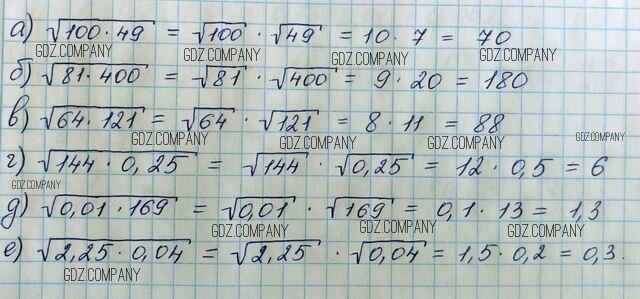 а) √100·49 = √100 · √49 = 10 · 7 = 70
GDZ.COMPANY GDZ.COMPANY GDZ.COMPANY GDZ.COMPANY
б) √81·400 = √81 · √400 = 9 · 20 = 180
в) √64·121 = √64 · √121 = 8 · 11 = 88
GDZ.COMPANY GDZ.COMPANY GDZ.COMPANY GDZ.COMPANY
г) √144·0,25 = √144 · √0,25 = 12 · 0,5 = 6
GDZ.COMPANY
д) √0,01·169 = √0,01 · √169 = 0,1 · 13 = 1,3
GDZ.COMPANY GDZ.COMPANY GDZ.COMPANY GDZ.COMPANY
е) √2,25·0,04 = √2,25 · √0,04 = 1,5 · 0,2 = 0,3.
GDZ.COMPANY